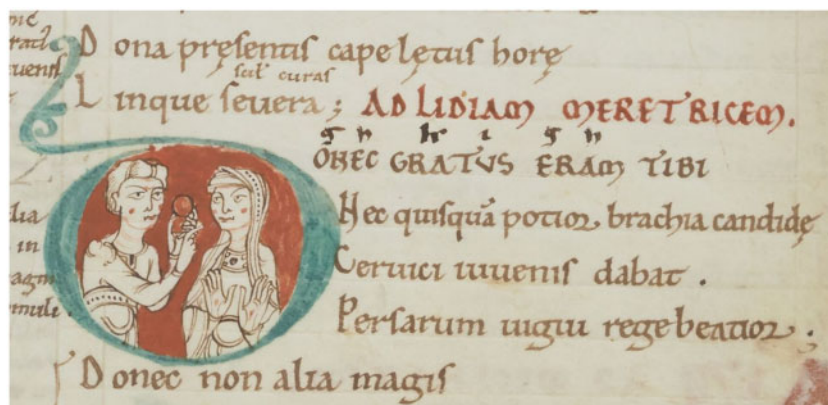 Dona pręsentis cape lętus horę
scil' curas
Linque severa; AD LIDIAM MERETRICEM.
DONEC GRATUS ERAM TIBI
Nec quisquā potior brachia candidę
Cervici iuvenis dabat.
Persarum vigui rege beatior;
Donec non alia magis